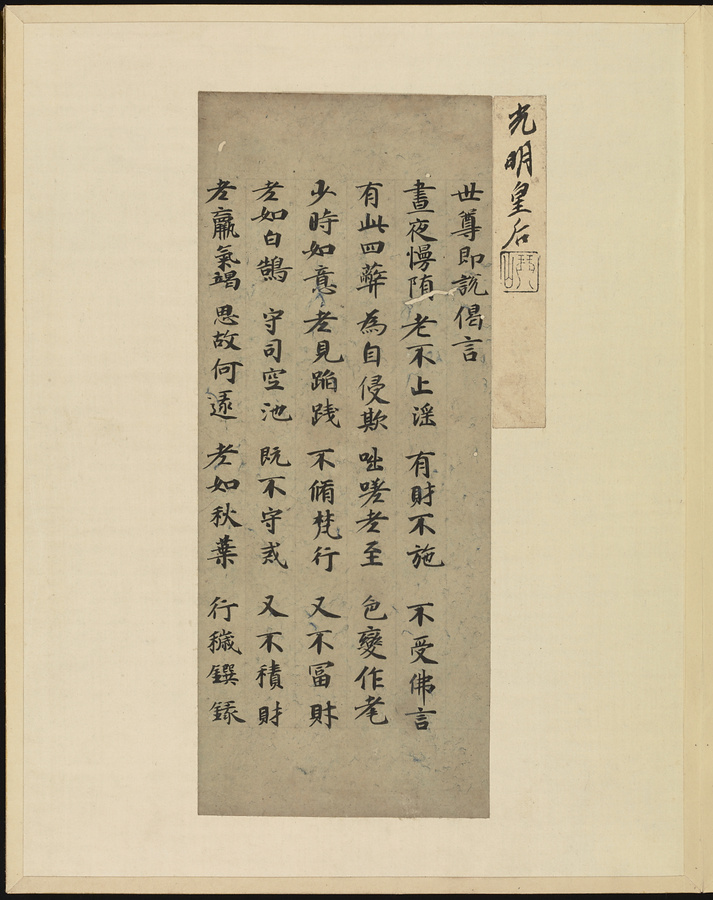 光明皇后
世尊即說偈言
晝夜慢墮 老不止滛 有財不施 不受佛言
有此四蔽 為自侵欺 咄嗟老至 色變作耄
少時如意 老見蹈踐 不脩梵行 又不冨財
老如白鵠 守司空池 既不守戒 又不積財
老羸氣竭 思故何逮 老如秋葉 行穢鑱録